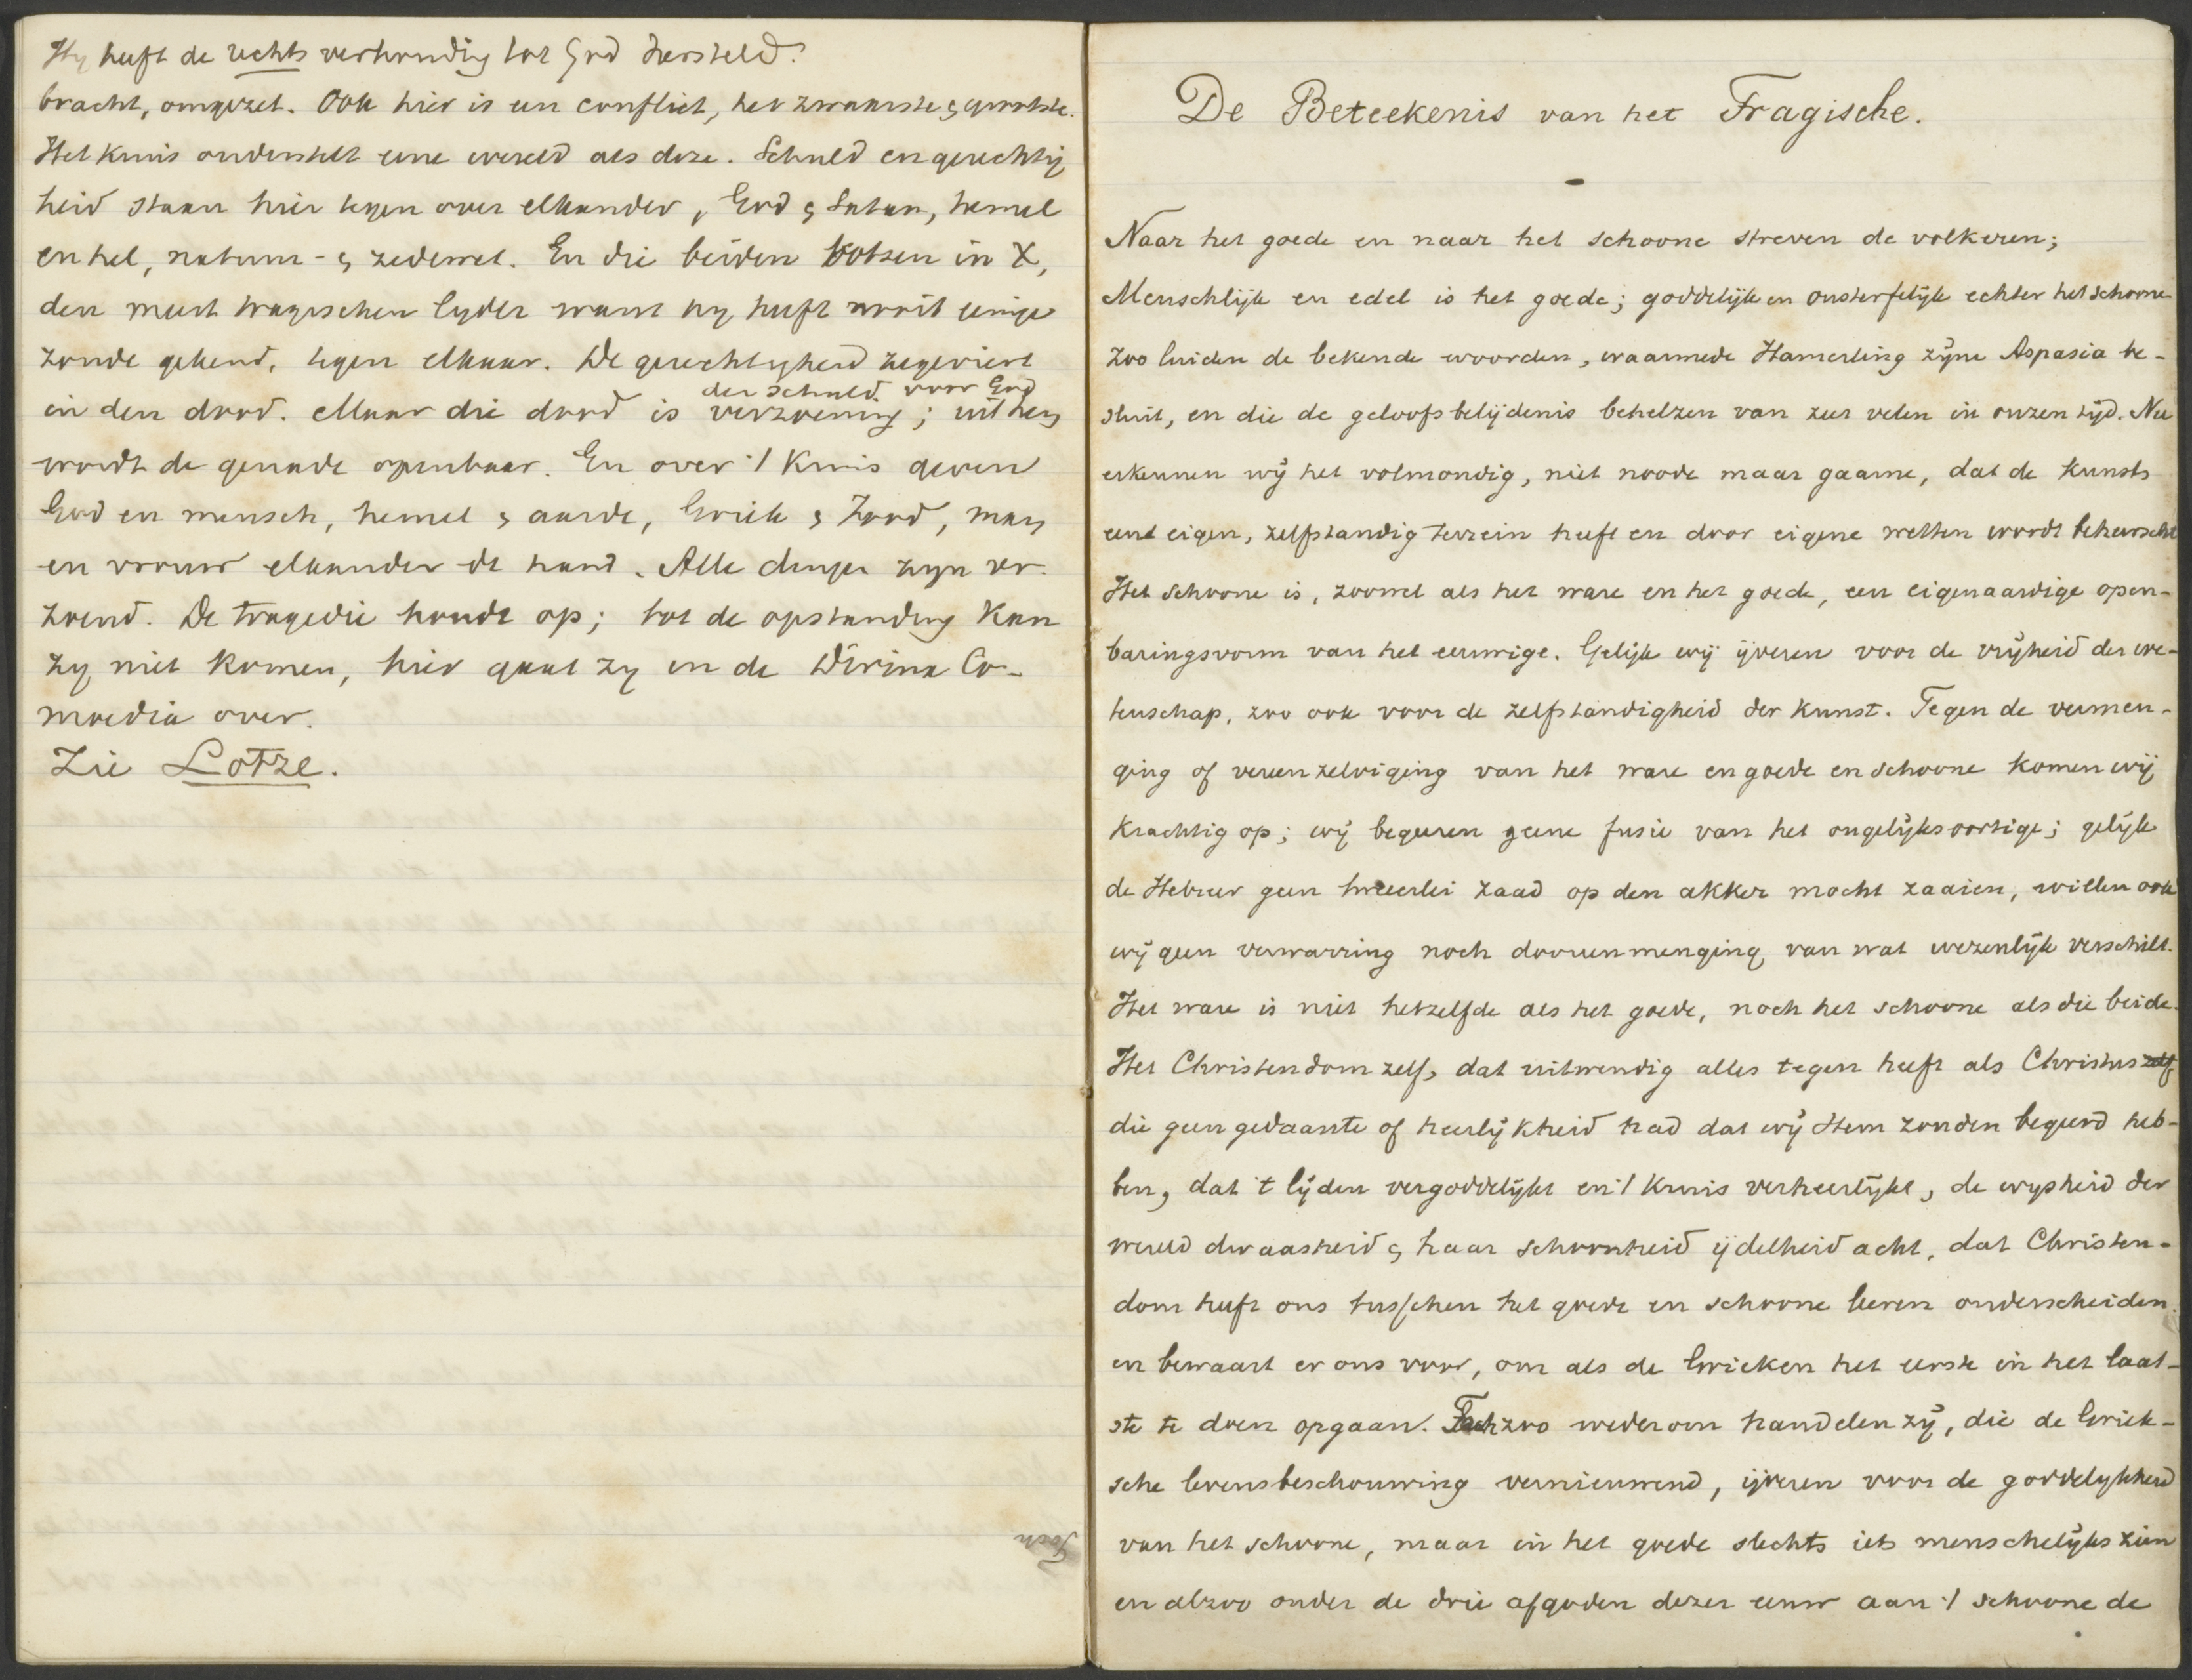 Hij heeft de rechtsverhouding tot God hersteld.
bracht, omgezet. Ook hier is een conflict, het zwaarste & grootste.
Het kruis onderstelt eene wereld als deze. Schuld en gerechtig
heid staan hier tegen over elkander, God & Satan, hemel
en hel, natuur- & zedewet. En die beiden botsen in X,
den meest tragischen lyder want hy heeft nooit eenige
zonde gekend, tegen elkaar. De gerechtigheid zegeviert
der schuld voor God
in den dood. Maar die dood is verzoening; uit hem
wordt de genade openbaar. En over 't kruis geven
God en mensch, hemel & aarde, Griek & Jood, man
en vrouw elkander de hand. Alle dingen zyn ver-
zoend. De tragedie houdt op; tot de opstanding kan
zy niet komen, hier gaat zy in de Divina Co-
moedia over.
Zie Lotze.
Toch
De Beteekenis van het Tragische.
Naar het goede en naar het schoone streven de volkeren;
Menschlijk en edel is het goede; goddelijk en onsterfelijk echter het schoone
Zoo luiden de bekende woorden, waarmede Hamerling zijne Aspasia be-
sluit, en die de geloofsbelijdenis behelzen van zeer velen in onzen tijd. Nu
erkennen wij het volmondig, niet noode maar gaarne, dat de kunst
een eigen, zelfstandig terrein heeft en door eigene wetten wordt beheerscht
Het schoone is, zoowel als het ware en het goede, een eigenaardige open-
baringsvorm van het eeuwige. Gelijk wij ijveren voor de vrijheid der we-
tenschap, zoo ook voor de zelfstandigheid der kunst. Tegen de vermen-
ging of vereenzelviging van het ware en goede en schoone komen wij
krachtig op; wij begeeren geene fusie van het ongelijksoortige; gelijk
de Hebreer geen tweeerlei zaad op den akker mocht zaaien, willen ook
wij geen verwarring noch dooreenmenging van wat wezenlijk verschilt.
Het ware is niet hetzelfde als het goede, noch het schoone als die beide.
Het Christendom zelf, dat uitwendig alles tegen heeft als Christus zelf
die geen gedaante of heerlijkheid had dat wij Hem zouden begeerd heb-
ben, dat 't lijden vergoddelijkt en 't kruis verheerlijkt, de wijsheid der
wereld dwaasheid & haar schoonheid ijdelheid acht, dat Christen-
dom heeft ons tusschen het goede en schoone leeren onderscheiden
en bewaart er ons voor, om als de Grieken het eerste in het laat-
ste te doen opgaan. Toch zoo wederom handelen zij, die de Griek-
sche levensbeschouwing vernieuwend, ijveren voor de goddelykheid
van het schoone, maar in het goede slechts iets menschelijks zien
en alzoo onder de drie afgoden dezer eeuw aan 't schoone de